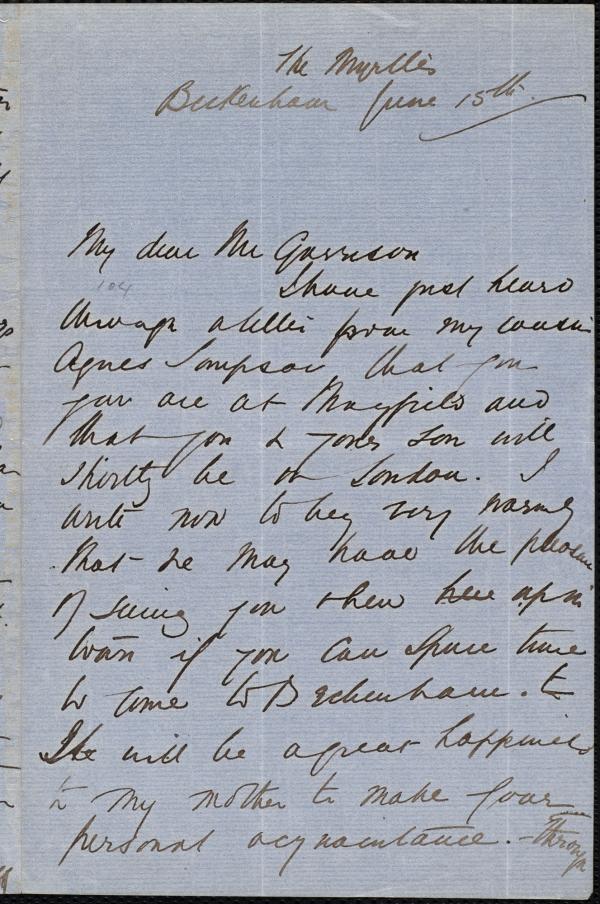 The Myrtles
Beckenham June 15th.
My dear Mr Garrison
104
I have just heard
through a letter from my cousin
Agnes Simpson that you
you are at Mayfield and
that you & your son will
shortly be in London. I
write now to beg very warmly
that we may have the pleasure
of seeing you when here up in
town if you can spare time
to come to Beckenham. to
It will be a great happiness
to my mother to make your
personal acquaintance. - Through